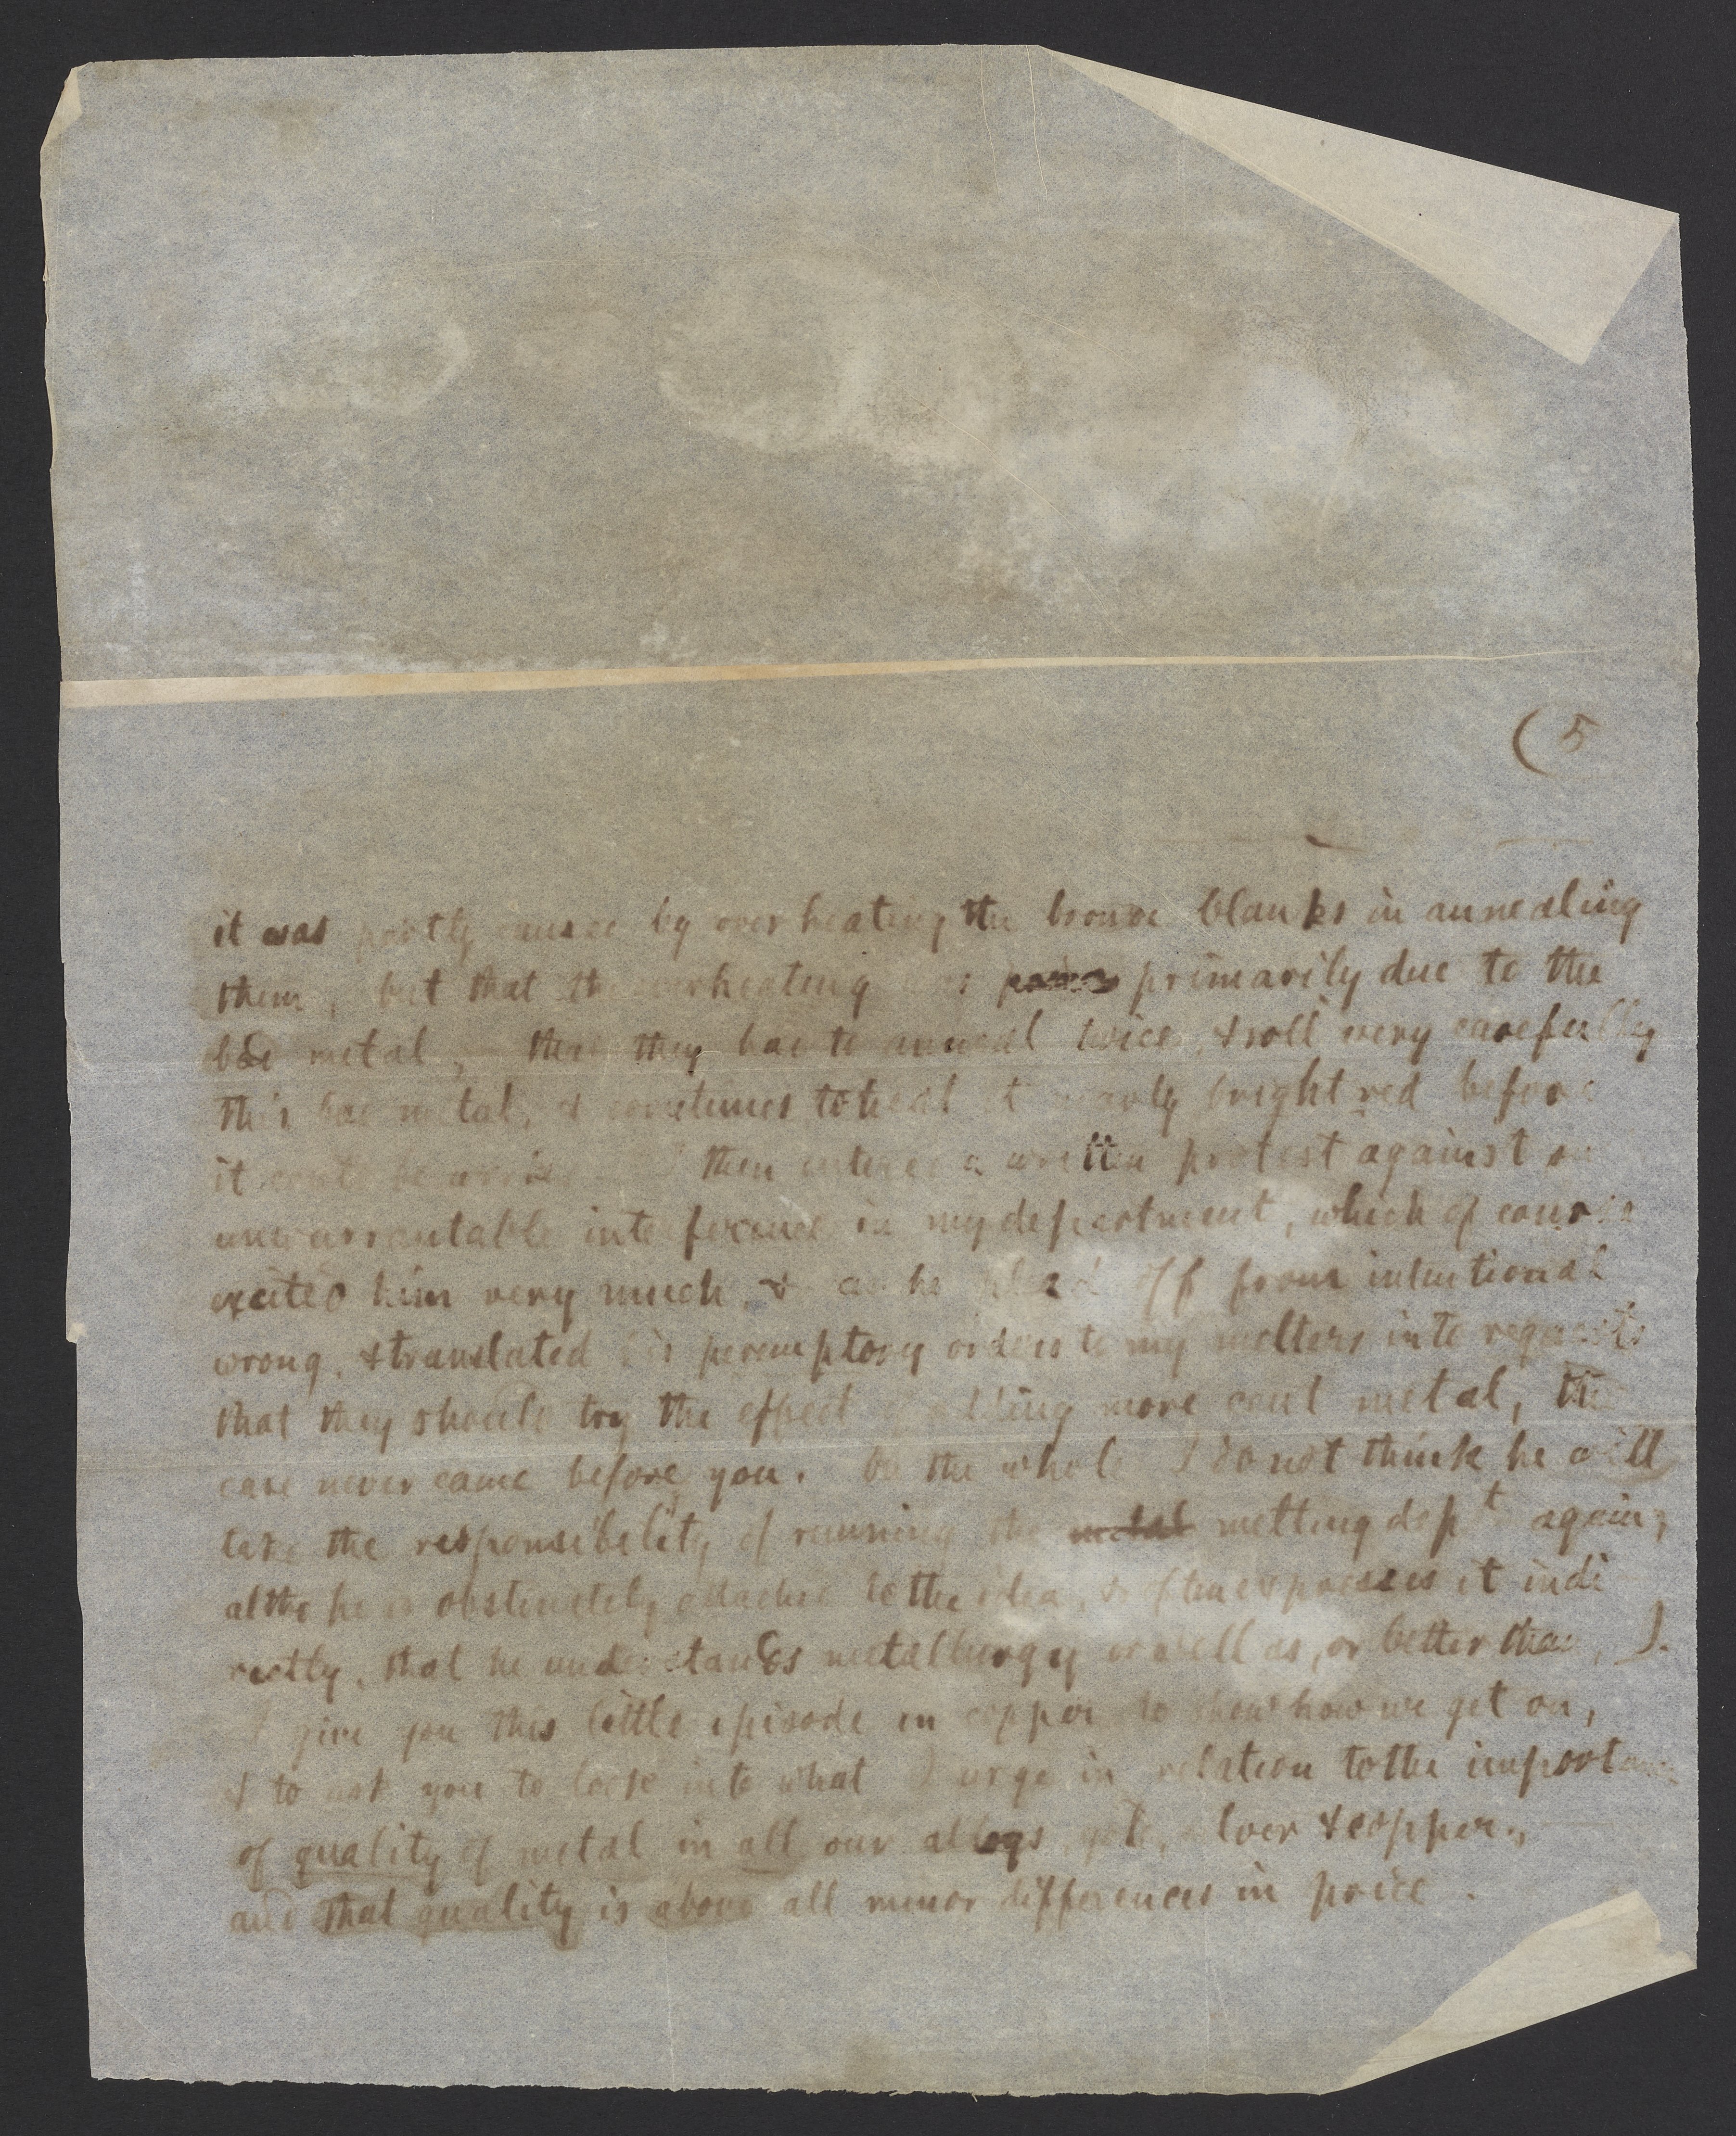 (5
it was partly caused by over heating the bronze blanks in annealing
them, but that the overheating was primarily due to the
bad metal, that they had to anneal twice, & roll very carefully
this bad metal, & sometimes to heat it nearly bright red before
it could be then entered a written protest against
unwarrantable interference in my department, which of course
excited him very much, & as he off from intentional
wrong, & translated his peremptory orders to my melters into requests
that they should try the effect of adding more metal, the
case never came before you. On the whole I do not think he will
take the responsibility of running the metal melting dept again,
altho he is obstinately attached to the idea, & often expresses it indi
rectly, that he understands metallurgy as well as, or better than, I.
I give you this little episode in copper to show how we get on,
& to ask you to look into what I urge in relation to the importance
of quality of metal in all our alloys, gold, silver & copper,
and that quality is above all minor differences in price.